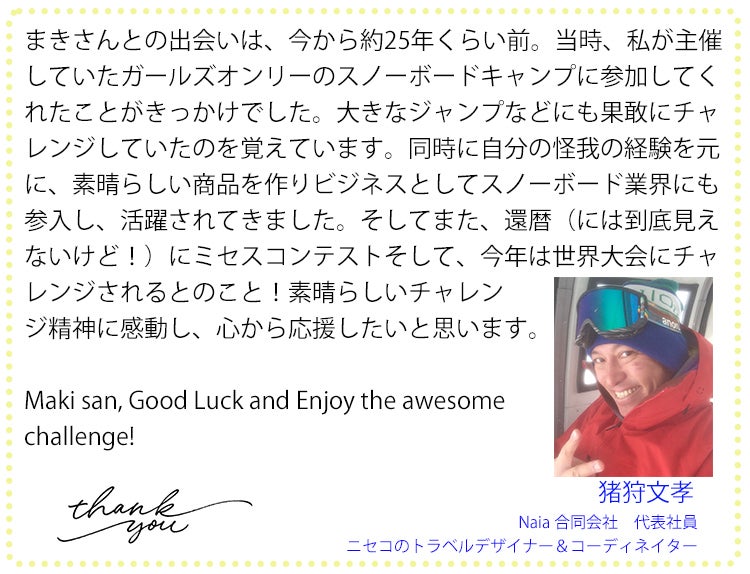 まきさんとの出会いは、今から約25年くらい前。当時、私が主催
していたガールズオンリーのスノーボードキャンプに参加してく
れたことがきっかけでした。大きなジャンプなどにも果敢にチャ
レンジしていたのを覚えています。同時に自分の怪我の経験を元
に、素晴らしい商品を作りビジネスとしてスノーボード業界にも
参入し、活躍されてきました。そしてまた、還暦（には到底見え
ないけど！）にミセスコンテストそして、今年は世界大会にチャ
レンジされるとのこと！素晴らしいチャレン
ジ精神に感動し、心から応援したいと思います。
Maki san, Good Luck and Enjoy the awesome
challenge!
thank
you
猪狩文孝
Naia 合同会社　代表社員
ニセコのトラベルデザイナー＆コーディネイター